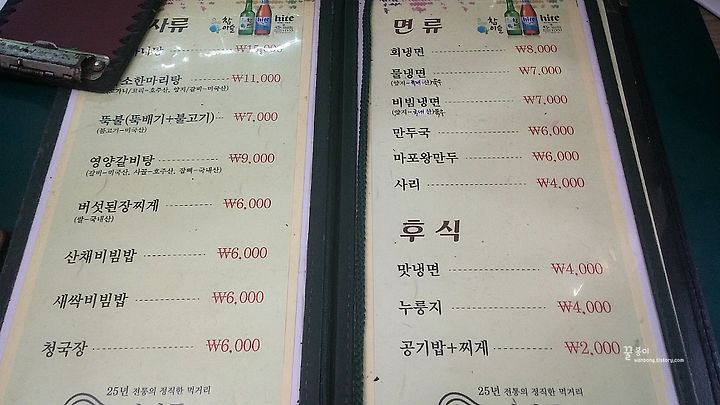 사류
₩15,000
소한마리탕 ₩11,000
뚝불(뚝배기+불고기) ₩7,000
(불고기-미국산)
영양갈비탕 ₩9,000
(갈비-미국산, 사골-호주산, 잡뼈-국내산)
버섯된장찌게 ₩6,000
(쌀-국내산)
산채비빔밥 ₩6,000
새싹비빔밥 ₩6,000
청국장 ₩6,000
25년 전통의 정직한 먹거리
면류
참이슬
hite
회냉면 ₩8,000
물냉면 ₩7,000
비빔냉면 ₩7,000
만두국 ₩6,000
마포왕만두 ₩6,000
사리 ₩4,000
후식
맛냉면 ₩4,000
누룽지 ₩4,000
공기밥+찌게 ₩2,000
25년 전통의 정직한 먹거리
꿀봉이
wanbong.tistory.com